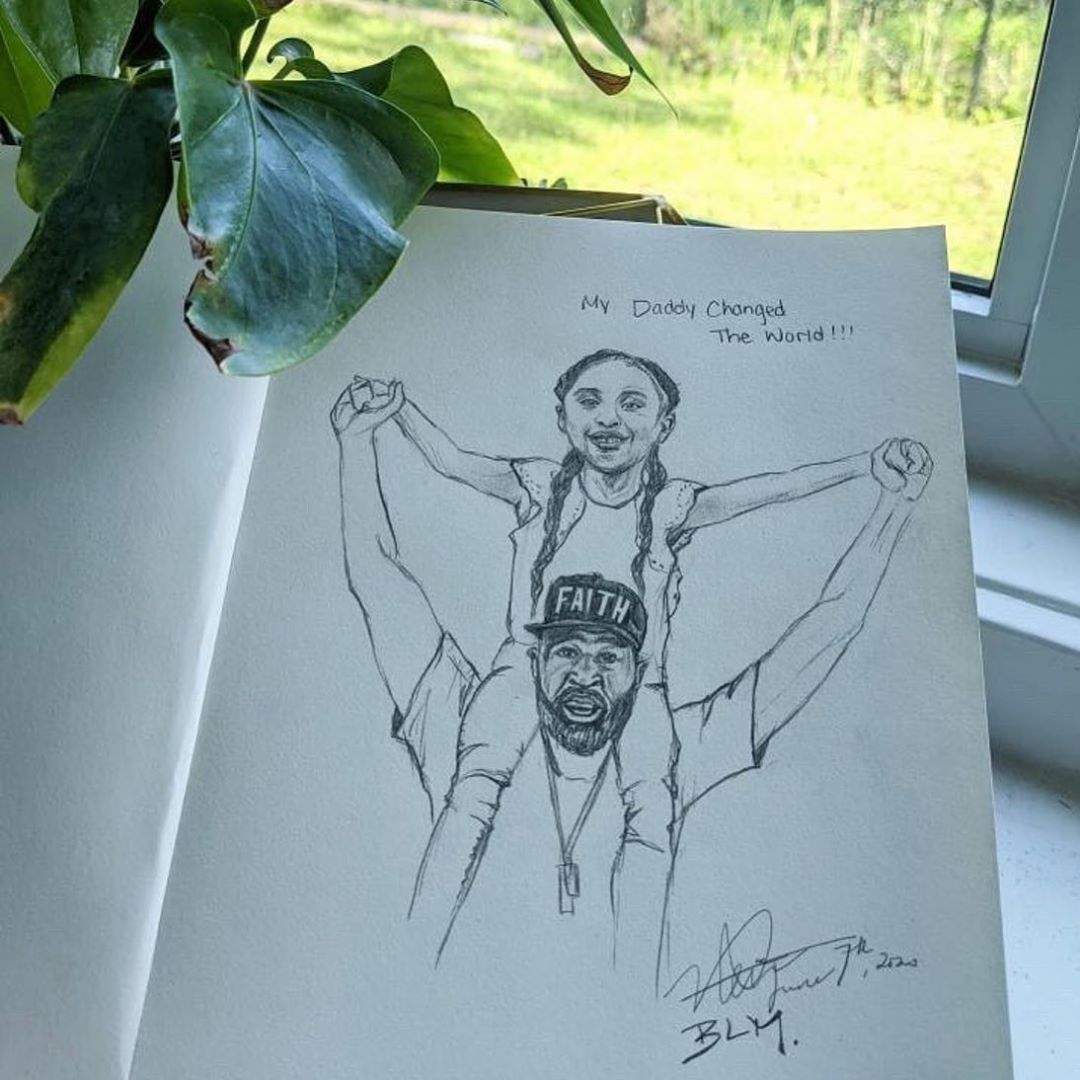 My Daddy Changed
The World!!!
FAITH
June 7th, 2020
BLM.